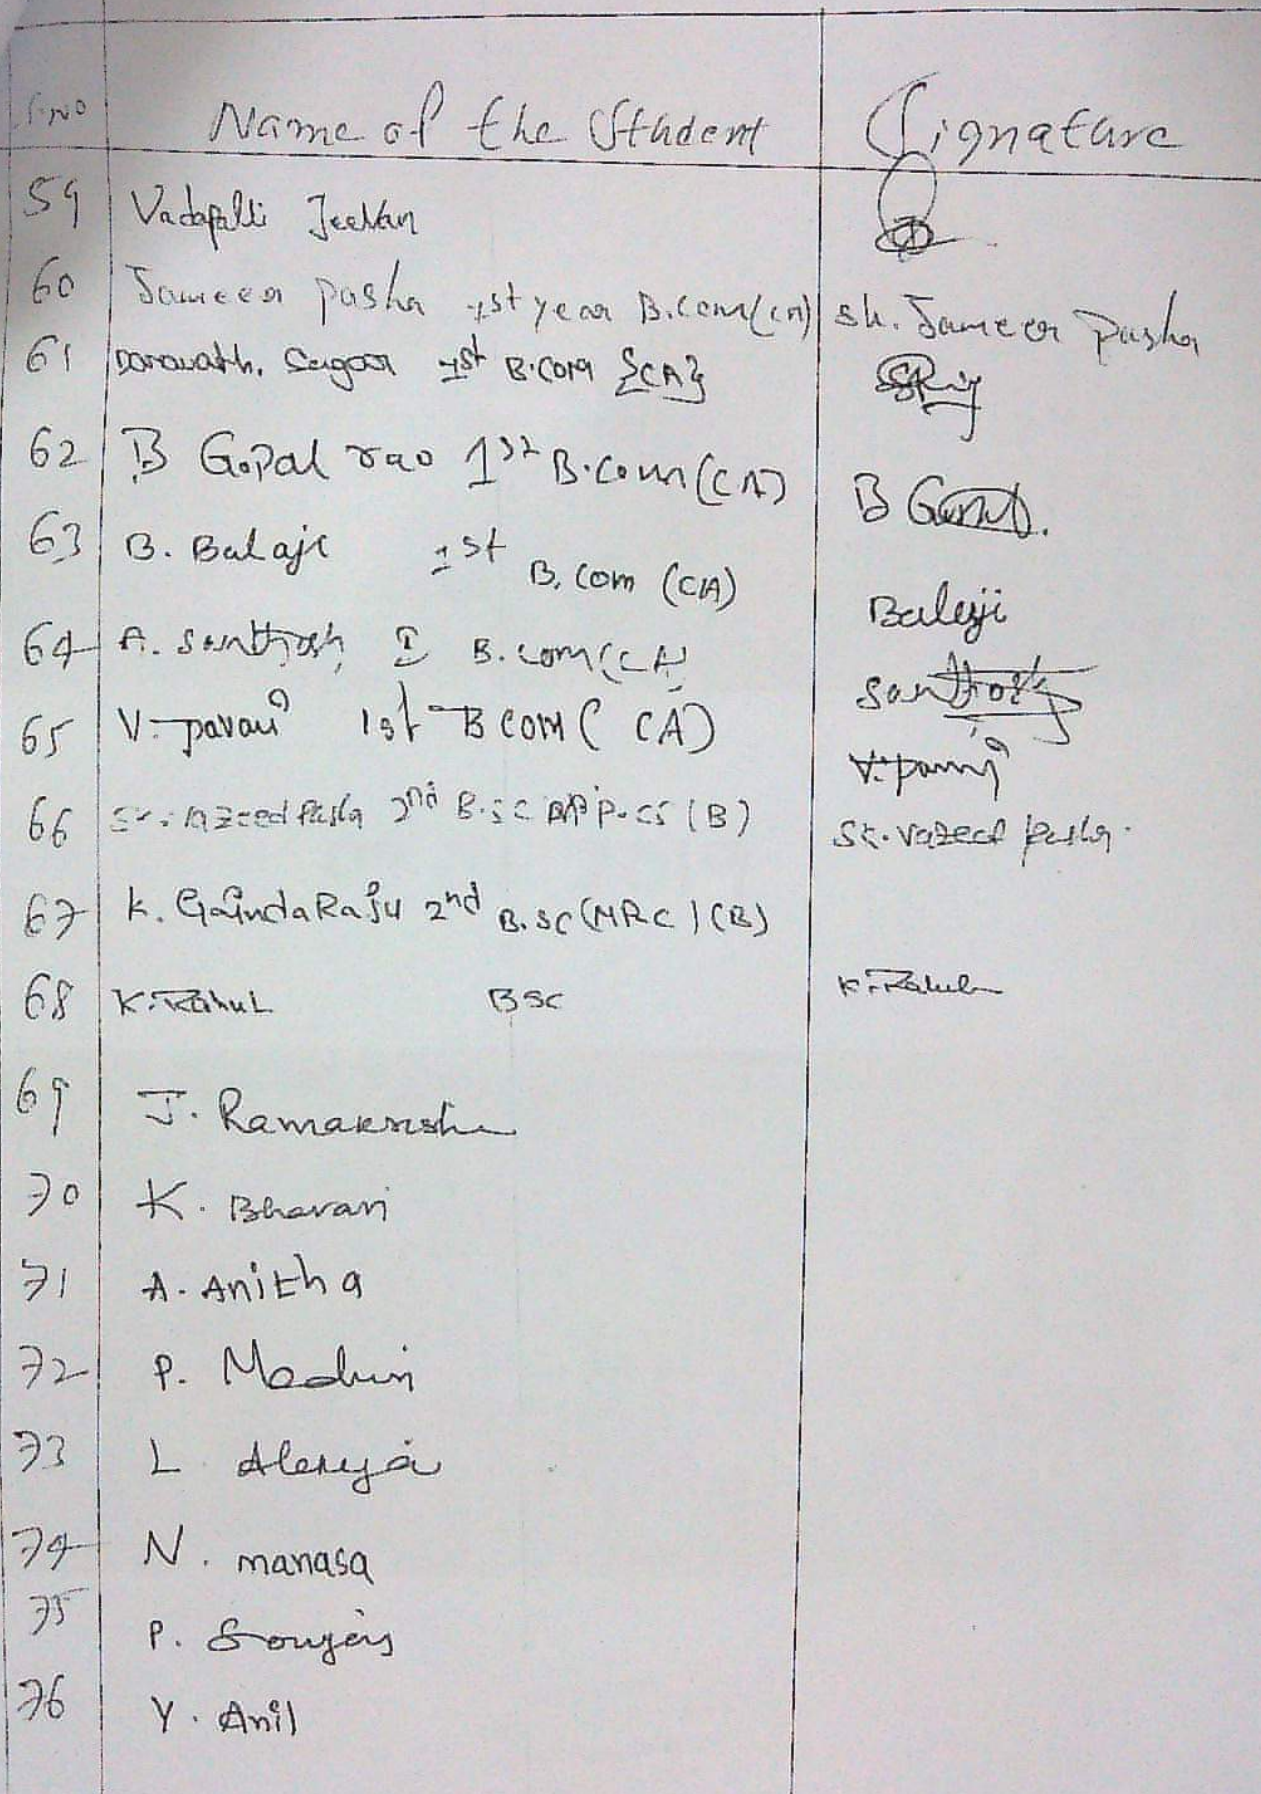 S.NO Name of the Student Signature
59 Vadapalli Jeevan
60 Jameer pasha 1st year B.com(CA) sk. Jameer Pasha
61 Sagar 1st B.com {CA}
62 B Gopal rao 1st B.com (CA) B
63 B. Balaji 1st B.com (CA) Balaji
64 A. Santhosh I B.com(CA) Santhosh
65 V. pavan 1st B COM (CA)
66 Sk. vazeed Pasha 2nd B.SC APP.CS (B) Sk. vazeed pasha.
67 K. GovindaRaju 2nd B.SC (MPC) (B)
68 K. Rahul BSC K. Rahul
69 J. Ramakrishna
70 K. Bhavani
71 A. Anitha
72 P. Madhuri
73 L Alekya
74 N. manasa
75 P.
76 Y. Anil